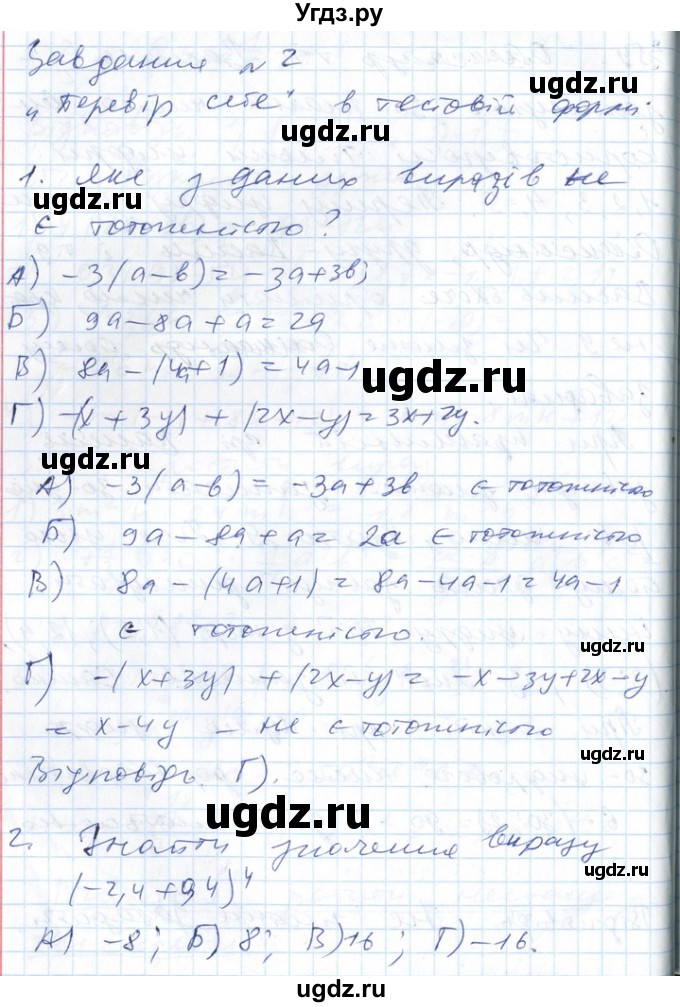 Угдз.ру
Завдання №2
„Перевір себе" в тестовій формі
ugdz.ru
1. Яке з даних виразів не
ugdz.ru ugdz.ru
є тотожністю?
А) -3(a-b) = -3a+3b;
Б) 9a-8a+a=2a
В) 8a-(4a+1)=4a-1
ugdz.ru
Г) -(x+3y)+(2x-y)=3x+2y.
ugdz.ru
А) -3(a-b) = -3a+3b є тотожністю
Б) 9a-8a+a= 2a є тотожністю
В) 8a-(4a+1)=8a-4a-1=4a-1
є тотожністю.
ugdz.ru
Г) -(x+3y)+(2x-y)= -x-3y+2x-y
= x-4y - не є тотожністю
ugdz.ru
Відповідь Г).
ugdz.ru
2. Знайти значення виразу
(-2,4+0,4)⁴
ugdz.ru
А) -8; Б) 8; В) 16; Г) -16.
ugdz.ru